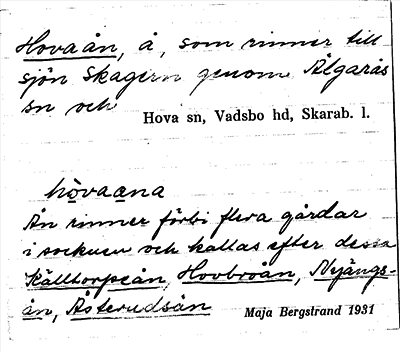 Hovaån, å, som rinner till
sjön Skagern genom Älgarås
sn och
Hova sn, Vadsbo hd, Skarab. l.
hòvaana
Ån rinner förbi flera gårdar
i socknen och kallas efter dessa
Källtorpeån, Hovbroån, Nyängs-
ån, Åsterudsån
Maja Bergstrand 1931